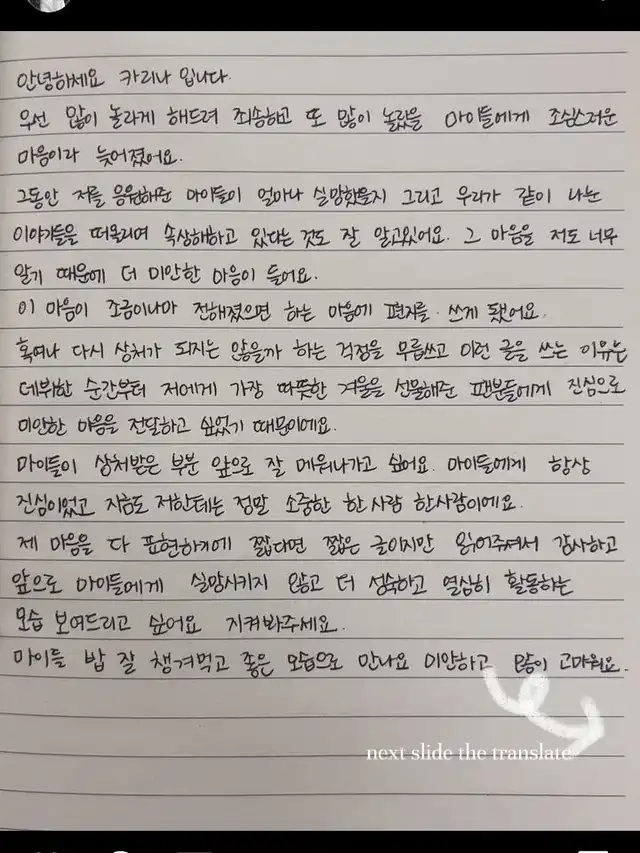 안녕하세요 카리나 입니다.
우선 많이 놀라게 해드려 죄송하고 또 많이 놀랐을 마이들에게 조심스러운
마음이라 늦어졌어요.
그동안 저를 응원해준 마이들이 얼마나 실망했을지 그리고 우리가 같이 나눈
이야기들을 떠올리며 속상해하고 있다는 것도 잘 알고있어요. 그 마음을 저도 너무
알기 때문에 더 미안한 마음이 들어요.
이 마음이 조금이나마 전해졌으면 하는 마음에 편지를 쓰게 됐어요.
혹여나 다시 상처가 되지는 않을까 하는 걱정을 무릅쓰고 이런 글을 쓰는 이유는
데뷔한 순간부터 저에게 가장 따뜻한 겨울을 선물해준 팬분들에게 진심으로
미안한 마음을 전달하고 싶었기 때문이에요.
마이들이 상처받은 부분 앞으로 잘 메워나가고 싶어요. 마이들에게 항상
진심이었고 지금도 저한테는 정말 소중한 한 사람 한사람이에요.
제 마음을 다 표현하기에 짧다면 짧은 글이지만 읽어주셔서 감사하고
앞으로 마이들에게 실망시키지 않고 더 성숙하고 열심히 활동하는
모습 보여드리고 싶어요 지켜봐주세요.
마이들 밥 잘 챙겨먹고 좋은 모습으로 만나요 미안하고 많이 고마워요.
next slide the translate